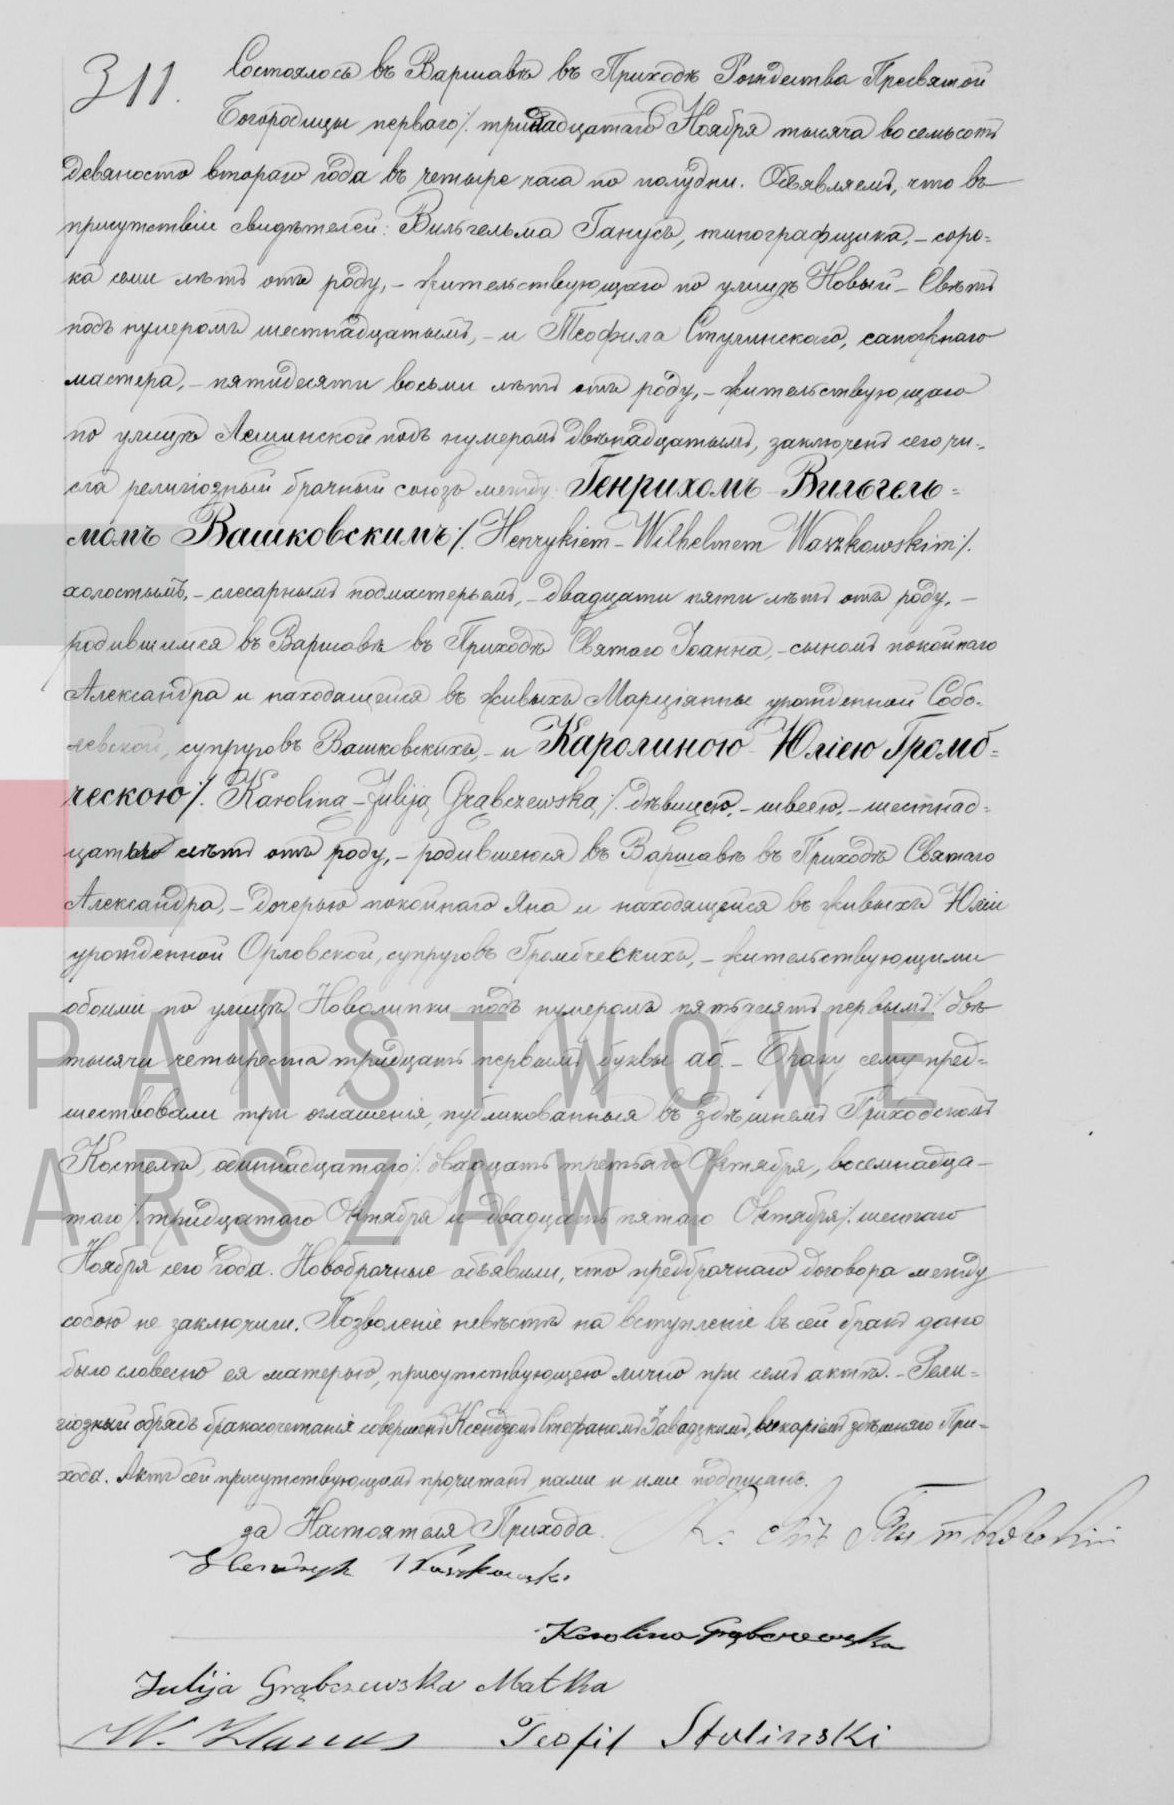 311.
Состоялось въ Варшавѣ въ Приходѣ Рождества Пресвятой
Богородицы перваго /. тринадцатаго Ноября тысяча восемьсотъ
девяносто втораго года въ четыре часа по полудни. Объявляемъ, что въ
присутствіи свидѣтелей: Вильгельма Ганусъ, типографщика, - соро-
ка семи лѣтъ отъ роду, - жительствующаго по улицѣ Новый-Свѣтъ
подъ нумеромъ шестнадцатымъ, - и Теофила Стулинскаго, сапожнаго
мастера, - пятидесяти восьми лѣтъ отъ роду, - жительствующаго
по улицѣ Лешинской подъ нумеромъ двѣнадцатымъ, заключенъ сего чи-
сла религіозный брачный союзъ между: Генрихомъ-Вильгель-
момъ Вашковскимъ /. Henrykiem-Wilhelmem Waszkowskim /.
холостымъ, - слесарнымъ подмастерьемъ, - двадцати пяти лѣтъ отъ роду, -
родившимся въ Варшавѣ въ Приходѣ Святаго Іоанна, - сыномъ покойнаго
Александра и находящейся въ живыхъ Марціянны урожденной Собо-
левской, супруговъ Вашковскихъ, - и Каролиною-Юліею Громб-
ческою /. Karolina-Juliją Grąbczewską /. дѣвицею, - швеею, - шестнад-
цати лѣтъ отъ роду, - родившеюся въ Варшавѣ въ Приходѣ Святаго
Александра, - дочерью покойнаго Яна и находящейся въ живыхъ Юліи
урожденной Орловской, супруговъ Громбческихъ, - жительствующими
обоими по улицѣ Новолипки подъ нумеромъ пятьдесятъ первымъ /. двѣ
тысячи четыреста тридцать первымъ буквы аб. - Браку сему пред-
шествовали три оглашенія, публикованныя въ здѣшнемъ Приходскомъ
Костелѣ, одиннадцатаго /. двадцать третьяго Октября, восемнадца-
таго /. тридцатаго Октября и двадцать пятаго Октября /. шестаго
Ноября сего года. Новобрачные объявили, что предбрачнаго договора между
собою не заключили. Позволеніе невѣстѣ на вступленіе въ сей бракъ дано
было словесно ея матерью, присутствующею лично при семъ актѣ. - Рели-
гіозный обрядъ бракосочетанія совершенъ Ксендзомъ Стефаномъ Завадзкимъ, викаріемъ здѣшняго При-
хода. Актъ сей присутствующимъ прочитанъ нами и ими подписанъ.
за Настоятеля Прихода.
Henryk Waszkowski
Karolina Grąbczewska
Julija Grąbczewska Matka
W. Hanus Teofil Stulinski
PAŃSTWOWE
ARSZAWY